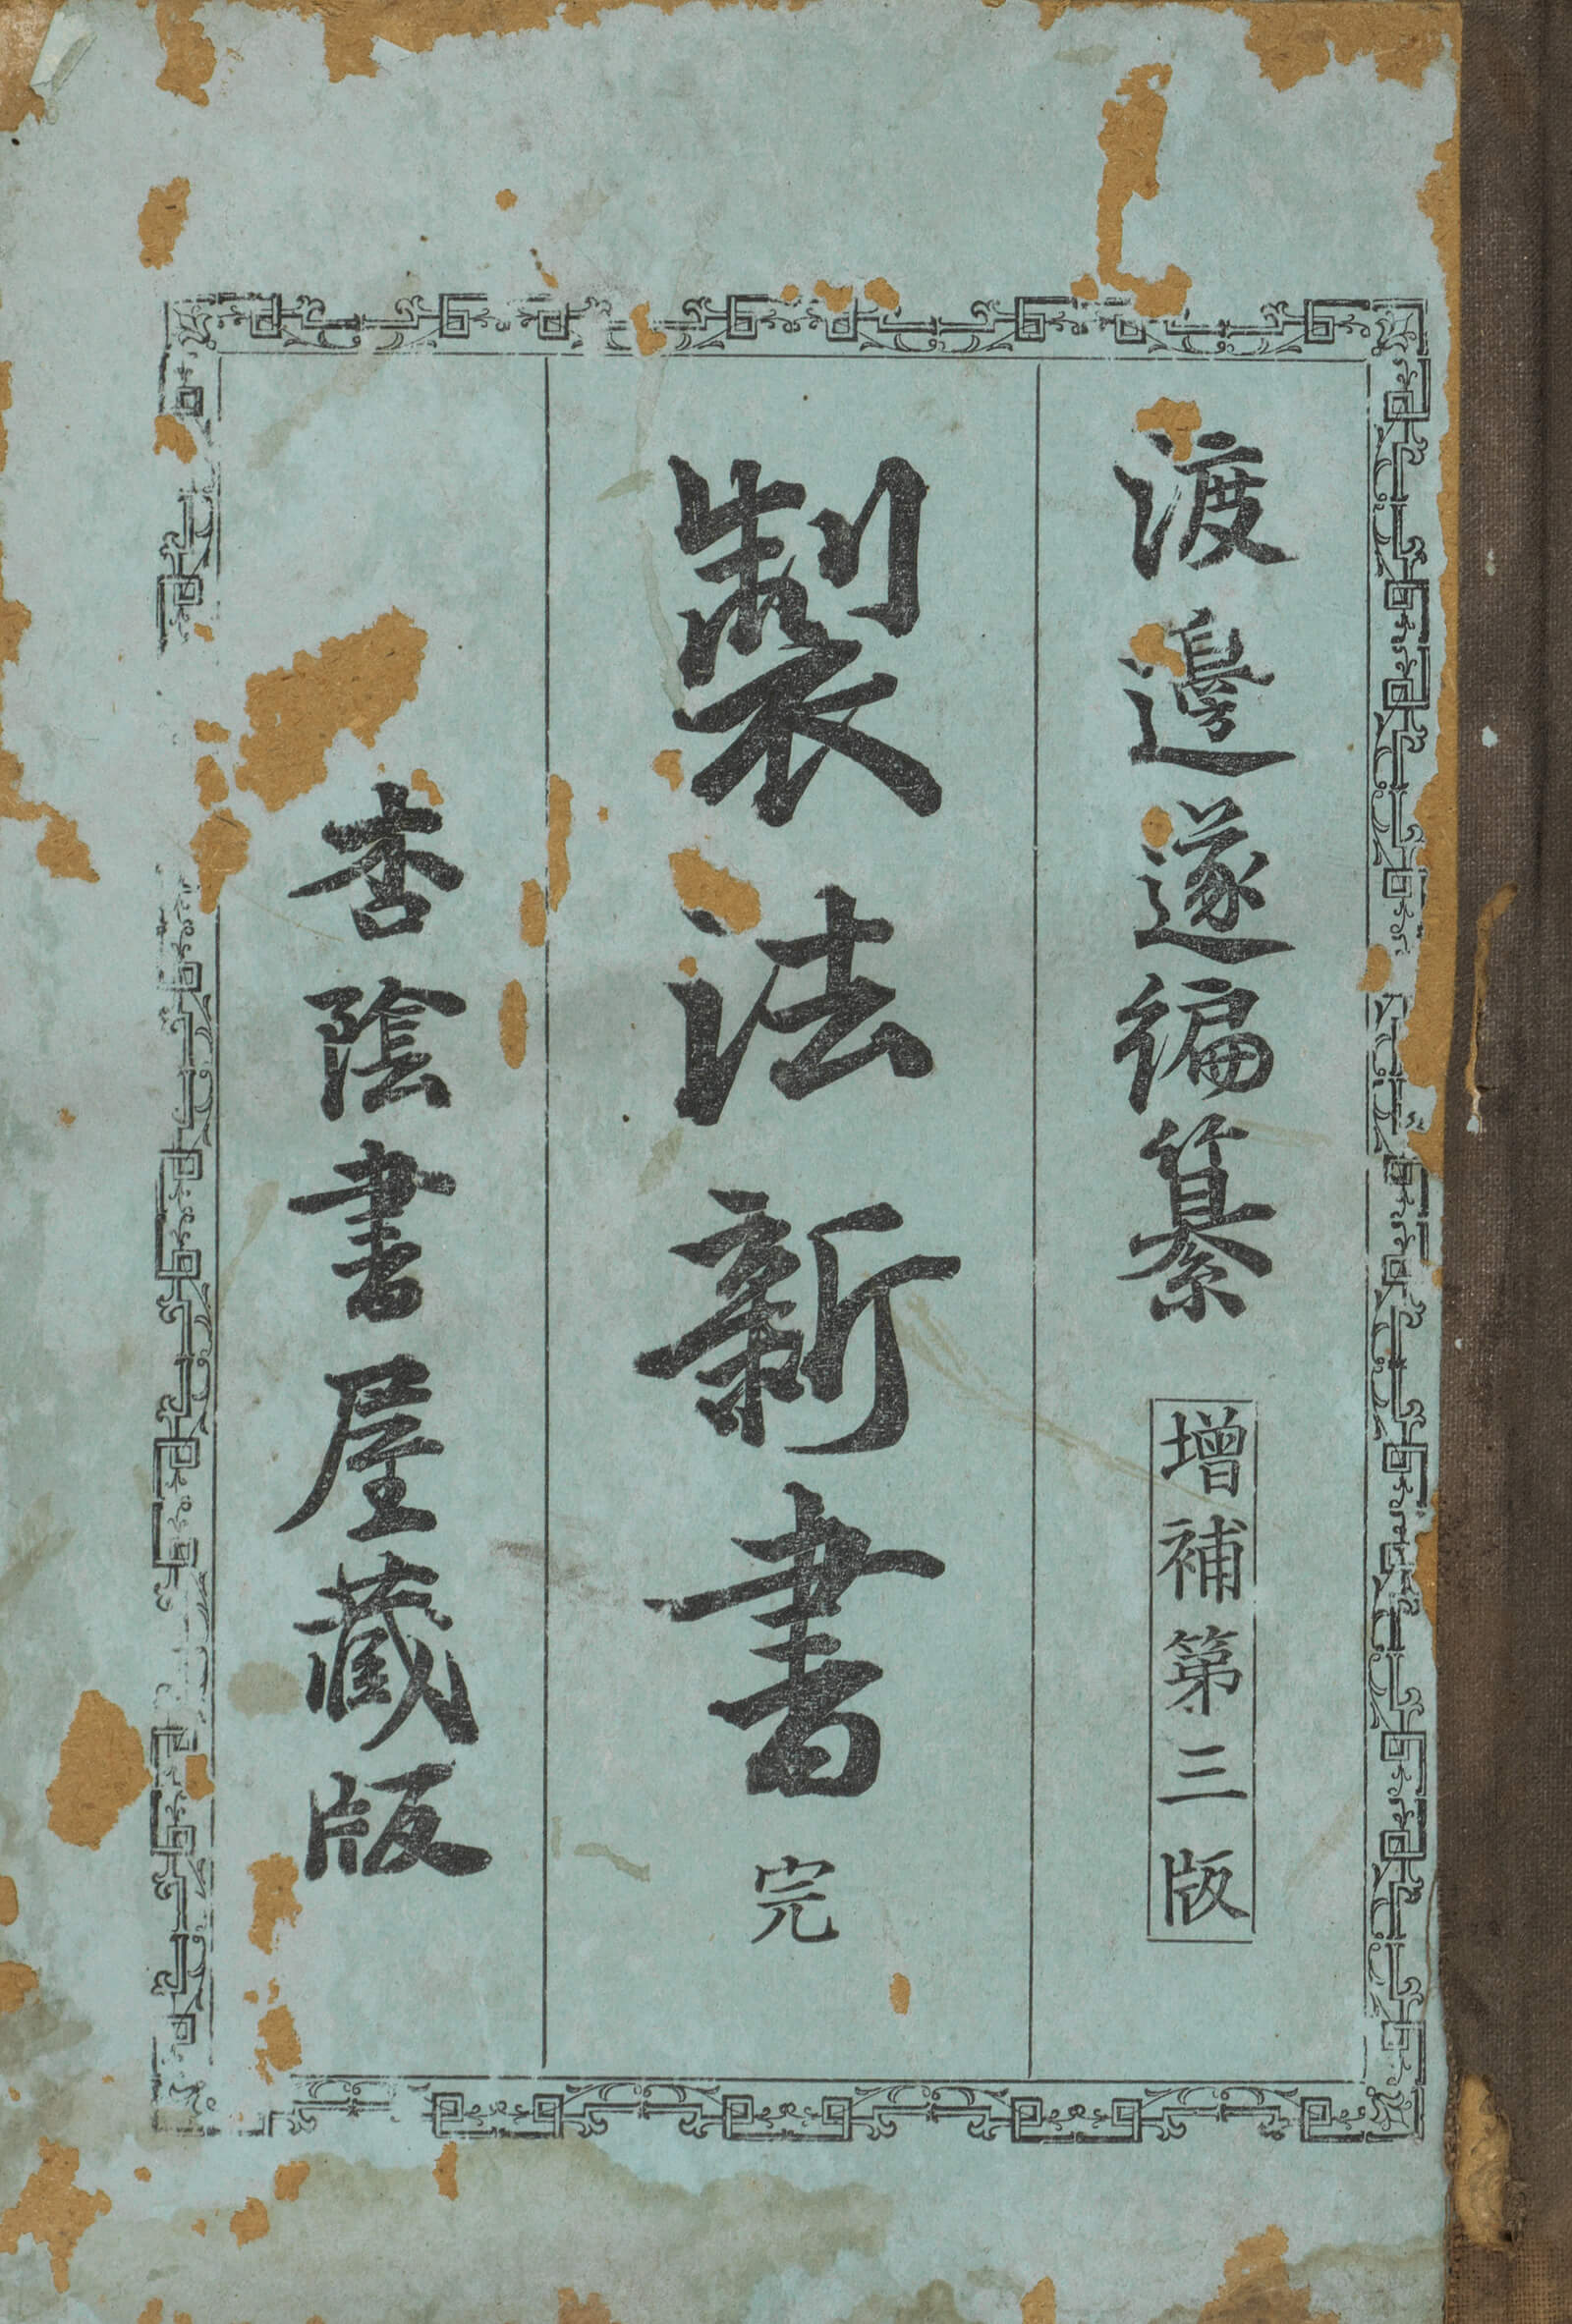 渡邊遂編纂 增補第三版
製法新書 完
杏陰書屋藏版